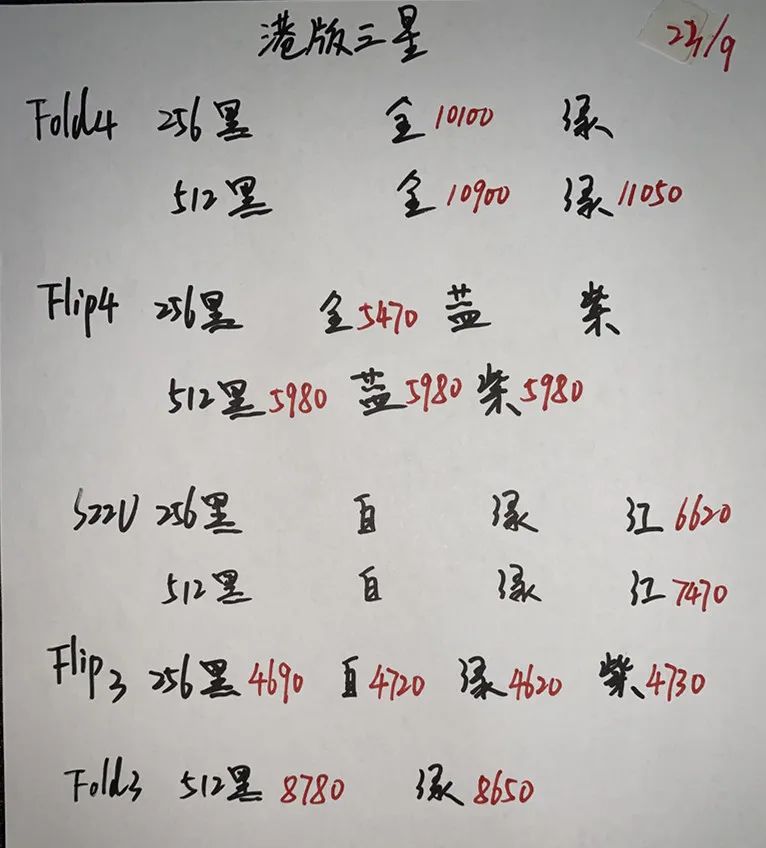 港版三星 23/9
Fold4 256黑 金10100 绿
512黑 金10900 绿11050
Flip4 256黑 金5470 蓝 紫
512黑5980 蓝5980 紫5980
S22U 256黑 白 绿 红6620
512黑 白 绿 红7470
Flip3 256黑4690 白4720 绿4620 紫4730
Fold3 512黑8780 绿8650